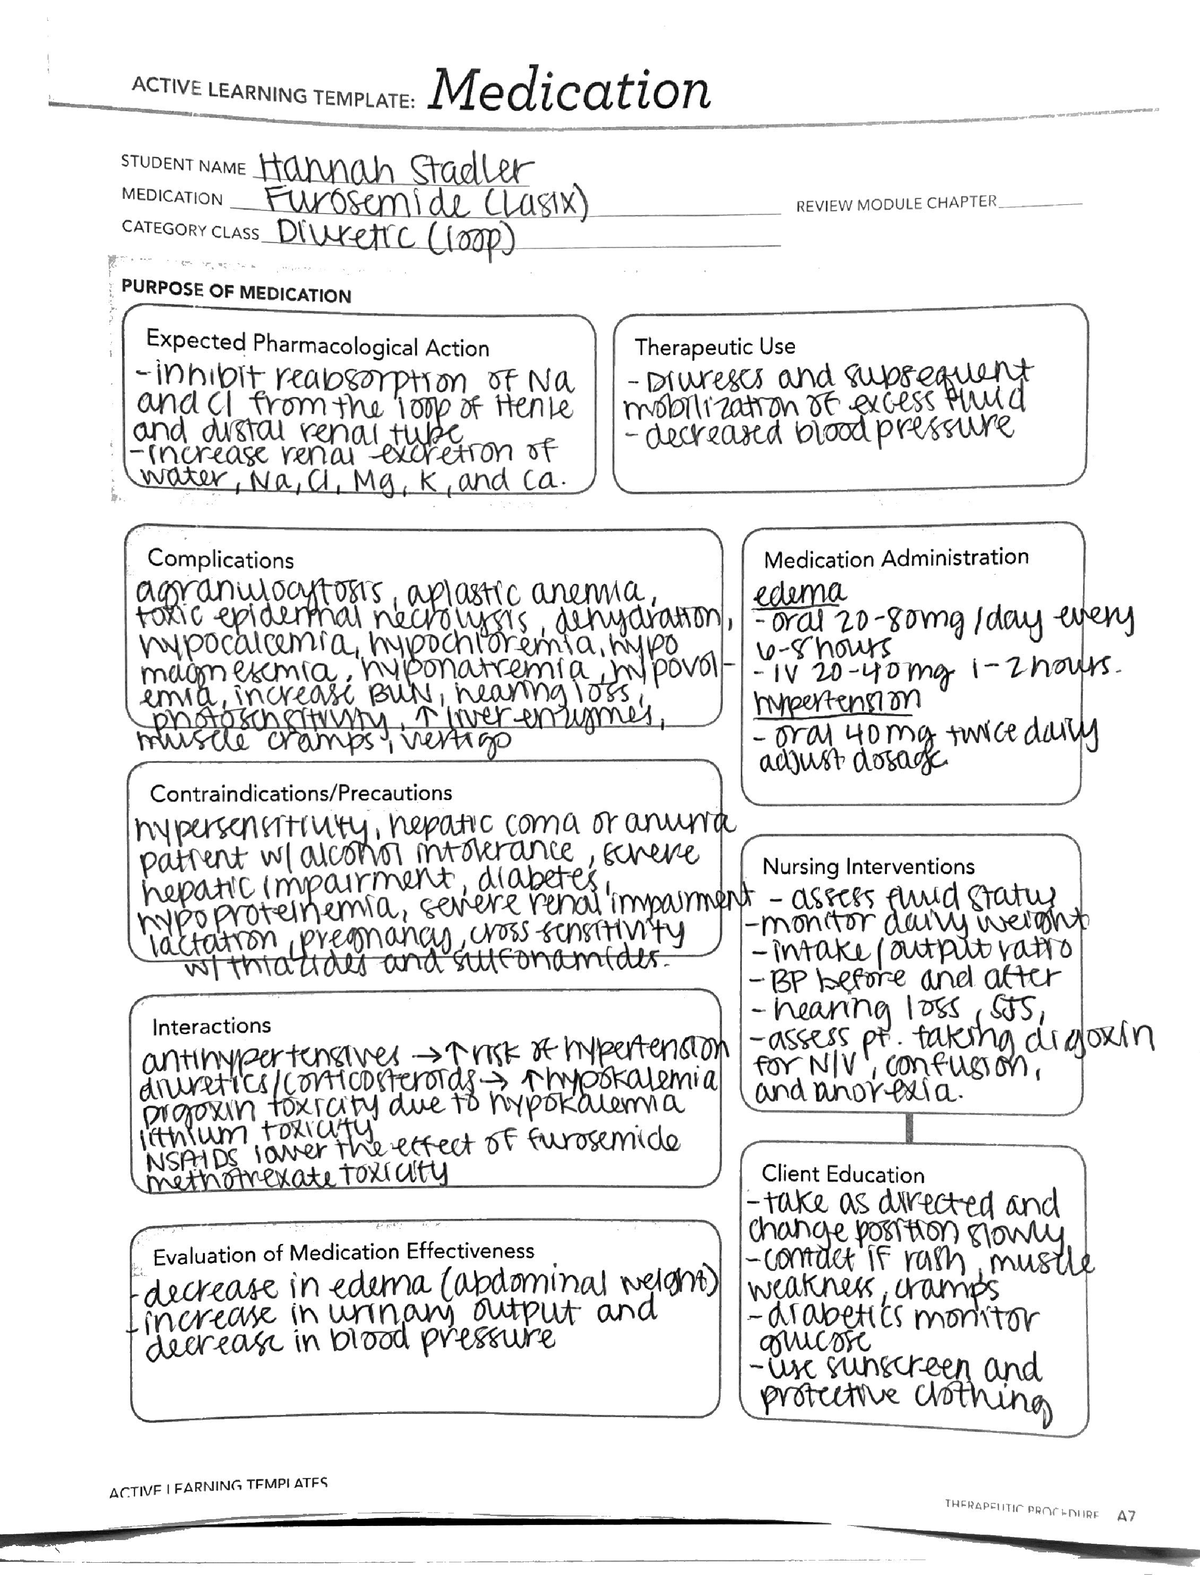 ACTIVE LEARNING TEMPLATE: Medication
STUDENT NAME Hannah Stadler
MEDICATION Furosemide (Lasix)
REVIEW MODULE CHAPTER
CATEGORY CLASS Diuretic (loop)
PURPOSE OF MEDICATION
Expected Pharmacological Action
-inhibit reabsorption of Na
and Cl from the loop of Henle
and distal renal tube
-increase renal excretion of
water, Na, Cl, Mg, K, and Ca.
Therapeutic Use
- Diureses and subsequent
mobilization of excess fluid
- decreased blood pressure
Complications
agranulocytosis, aplastic anemia,
toxic epidermal necrolysis, dehydration,
hypocalcemia, hypochloremia, hypo
magnesemia, hyponatremia, hypovol-
emia, increase BUN, hearing loss,
photosensitivity, ↑ liver enzymes,
muscle cramps, vertigo
Medication Administration
edema
- oral 20-80mg/day every
6-8 hours
- IV 20-40mg 1-2 hours.
hypertension
- oral 40mg twice daily
adjust dosage
Contraindications/Precautions
hypersensitivity, hepatic coma or anuria
patient w/ alcohol intolerance, severe
hepatic impairment, diabetes,
hypoproteinemia, severe renal impairment
lactation, pregnancy, cross-sensitivity
w/ thiazides and sulfonamides.
Nursing Interventions
- assess fluid status
-monitor daily weight
- intake/output ratio
- BP before and after
- hearing loss, SJS,
- assess pt. taking digoxin
for N/V, confusion,
and anorexia.
Interactions
antihypertensives → ↑ risk of hypertension
diuretics/corticosteroids → ↑ hypokalemia
digoxin toxicity due to hypokalemia
lithium toxicity
NSAIDS lower the effect of furosemide
methotrexate toxicity
Client Education
-take as directed and
change position slowly
-contact if rash, muscle
weakness, cramps
-diabetics monitor
glucose
-use sunscreen and
protective clothing
Evaluation of Medication Effectiveness
-decrease in edema (abdominal weight)
-increase in urinary output and
decrease in blood pressure
ACTIVE LEARNING TEMPLATES
THERAPEUTIC PROCEDURE A7